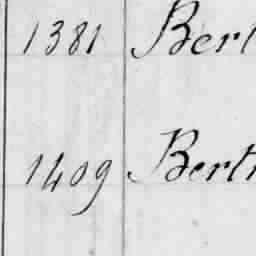 1381 Bert
1409 Berth